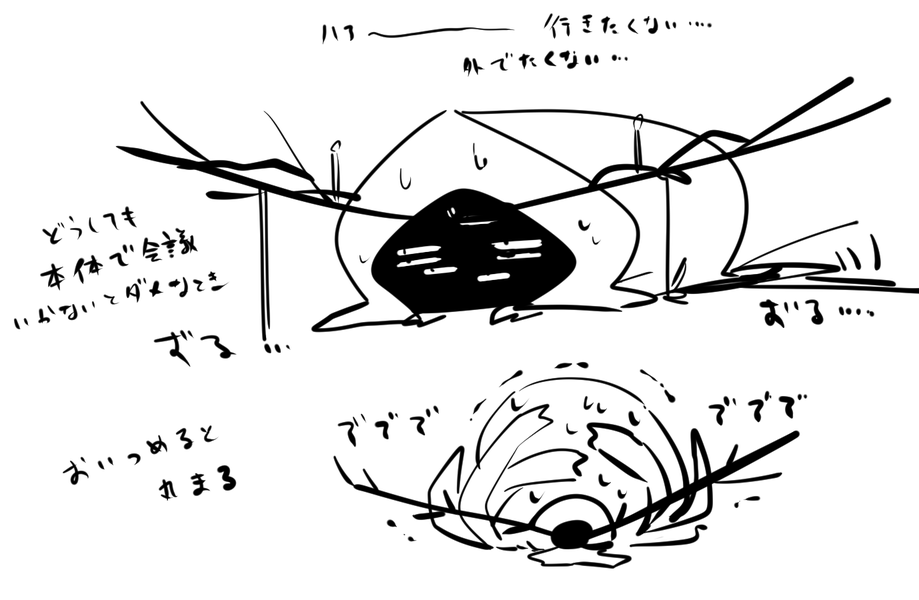 ハァ――― 行きたくない…‥
外でたくない…
どうしても
本体で会議
いかないとダメなとき
ずる…
ずる…‥
おいつめると
丸まる
でででで
ででで